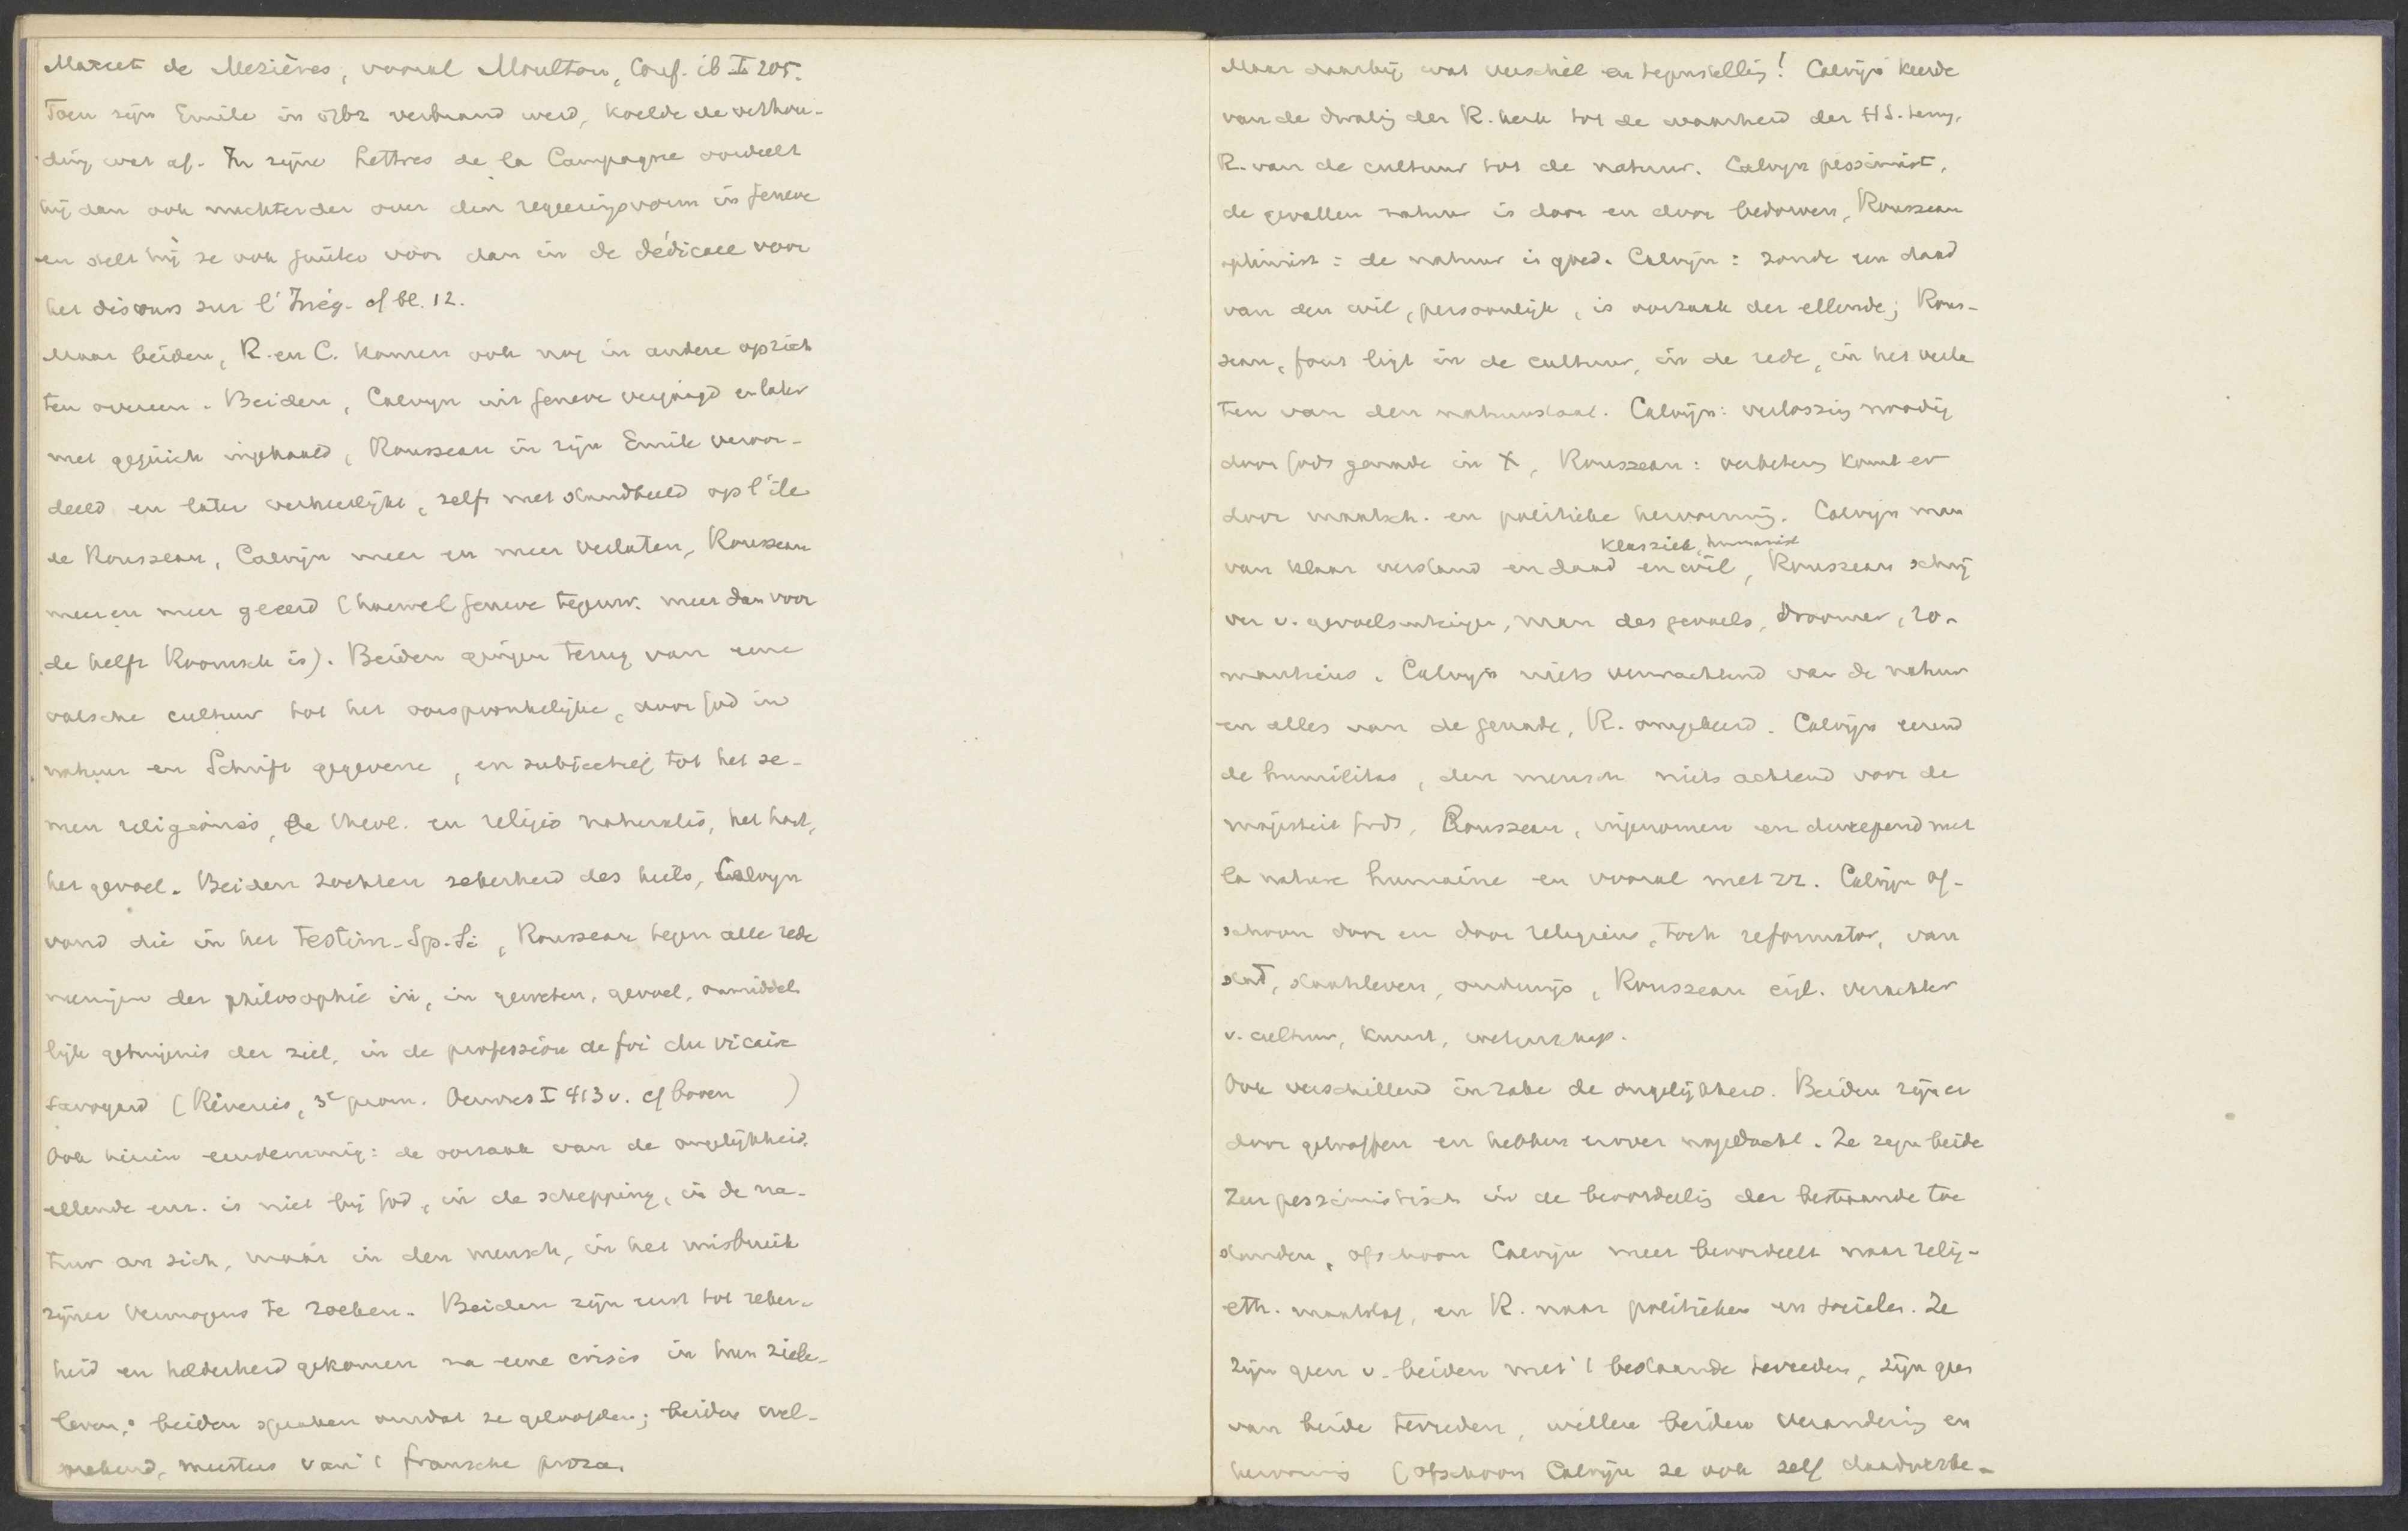 Marcet de Mezières, vooral Moultou, Conf. ib I 205.
Toen zijn Emile in 1762 verbrand werd, koelde de verhou-
ding wat af. In zijne Lettres de la Campagne oordeelt
hij dan ook nuchterder over den regeeringsvorm in Geneve
en stelt hij ze ook juister voor dan in de dédicace voor
het discours sur l'Inég. cf bl. 12.
Maar beiden, R. en C. komen ook nog in andere opzich
ten overeen. Beiden, Calvyn uit Geneve verjaagd en later
met gejuich ingehaald, Rousseau in zijn Emile veroor-
deeld en later verheerlijkt, zelfs met standbeeld op l'île
de Rousseau, Calvijn meer en meer verlaten, Rousseau
meer en meer geeerd (hoewel Geneve tegenw. meer dan voor
de helft Roomsch is). Beiden gingen terug van eene
valsche cultuur tot het oorspronkelijke, door God in
natuur en Schrift gegevene, en subjectief tot het se-
men religionis, de theol. en religio naturalis, het hart,
het gevoel. Beiden zochten zekerheid des heils, Calvyn
vond die in het Testim. Sp. Si, Rousseau tegen alle rede
neeringen der philosophie in, in geweten, gevoel, onmiddel
lijk getuigenis der ziel, in de profession de foi du vicaire
Savoyard (Rêveries, 3e prom. Oeuvres I 413 v. cf boven )
Ook hierin eenstemmig: de oorzaak van de ongelijkheid,
ellende enz. is niet bij God, in de schepping, in de na-
tuur an sich, maar in den mensch, in het misbruik
zijner vermogens te zoeken. Beiden zijn eerst tot zeker-
heid en helderheid gekomen na eene crisis in hun ziele-
leven; beiden spraken omdat ze geloofden; beiden wel-
sprekend, meesters van 't fransche proza.
Maar daarbij wat verschil en tegenstelling! Calvijn keerde
van de dwaling der R. kerk tot de waarheid der H S. terug,
R. van de cultuur tot de natuur. Calvyn pessimist,
de gevallen natuur is door en door bedorven, Rousseau
optimist: de natuur is goed. Calvijn: zonde een daad
van den wil, persoonlijk, is oorzaak der ellende; Rous-
seau, fout ligt in de cultuur, in de rede, in het verla
ten van den natuurstaat. Calvijn: verlossing noodig
door Gods genade in X, Rousseau: verbetering komt er
door maatsch. en politieke hervorming. Calvijn man
klassiek, humanist
van klaar verstand en daad en wil, Rousseau schrij
ver v. gevoelsneigingen, man des gevoels, droomer, ro-
manticus. Calvijn niets verwachtend van de natuur
en alles van de genade, R. omgekeerd. Calvijn eerend
de humilitas, den mensch niets achtend voor de
majesteit Gods, Rousseau, ingenomen en dweepend met
la nature humaine en vooral met zz. Calvijn of-
schoon door en door religieus, toch reformator, van
stad, staatsleven, onderwijs, Rousseau eigl. verachter
v. cultuur, kunst, wetenschap.
Ook verschillend in zake de ongelijkheid. Beiden zijn er
door getroffen en hebben erover nagedacht. Ze zijn beide
zeer pessimistisch in de beoordeeling der bestaande toe
standen, ofschoon Calvijn meer beoordeelt naar relig-
eth. maatstaf, en R. naar politieken en socialen. Ze
zijn geen v. beiden met 't bestaande tevreden, zijn geen
van beide tevreden, willen beiden verandering en
hervorming (ofschoon Calvijn ze ook zelf daadwerke-